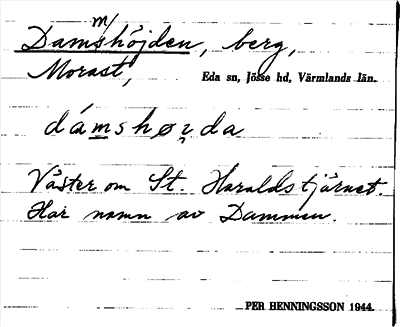 Dammshöjden, berg,
Morast, Eda sn, Jösse hd, Värmlands län.
dámshøɳda
Väster om St. Haraldstjärnet.
Har namn av Dammen.
PER HENNINGSSON 1944.